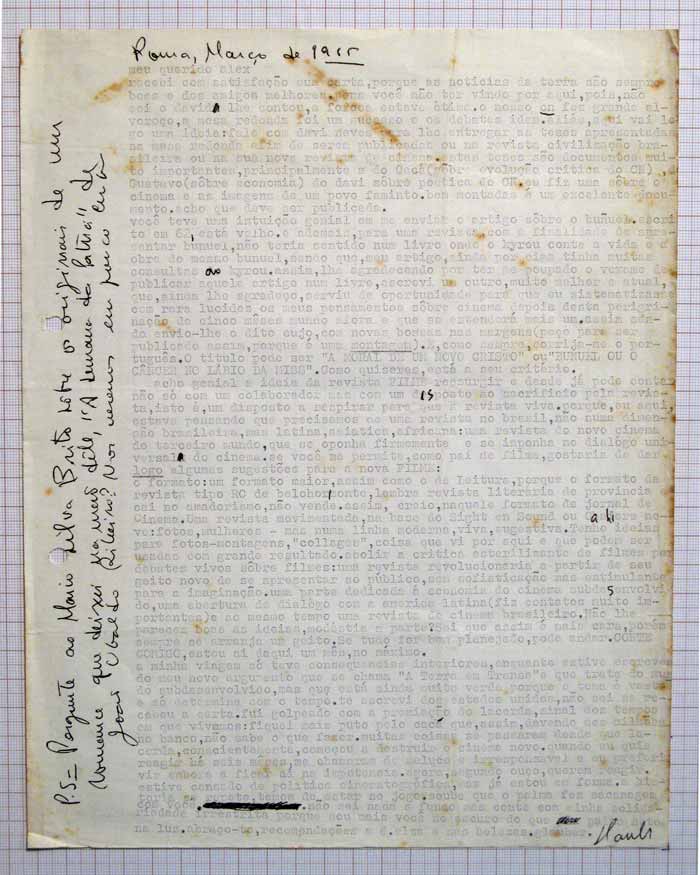 Roma, Março de 1965
meu querido alex
recebi com satisfação sua carta, porque as noticias da terra não sempre
boas e dos amigos melhores. pena você não ter vindo por aqui, pois, não
sei o davi lhe contou, a força estava ótima. o nosso on fez grande al-
voroço, a mesa redonda foi um sucesso e os debates ideais, e aí vai lo-
go uma ideia: fale com davi deve para lhe entregar as teses apresentadas
na mesa redonda afim de serem publicadas ou na revista civilização bra-
sileira ou na sua nova revista de cinema. estas teses são documentos mui-
to importantes, principalmente a do Cacá (sobre evolução critica do CN)
Gustavo (sôbre economia) do davi sôbre poetica do CN eu fiz uma sôbre o
cinema e as imagens de um povo faminto. bem montadas é um excelente docu-
mento. acho que deve ser publicada.
você teve uma intuição genial em me enviar o artigo sôbre o buñuel. escri-
to em 62 está velho. e ademais, para uma revista com a finalidade de apre-
sentar buñuel, não teria sentido num livro onde o kyrou conte a vida e a
obra do mesmo buñuel, sendo que, meu artigo, ainda por cima tinha muitas
consultas ao kyrou. assim, lhe agradecendo por ter me poupado o vexame de
publicar aquele artigo num livro, escrevi um outro, muito melhor e atual,
que, ainda lhe agradeço, serviu de oportunidade para que eu sistematizasse
com rara lucidez os meus pensamentos sôbre cinema, depois desta peregri-
nação de cinco mêses mundo afora e que se encerrará em um mês. assim sen-
do envio-lhe o dito cujo, com novas bossas nas margens (peço para ser
publicado assim, porque é montagem). E, como sempre, corrija-me o por-
tuguês. O titulo pode ser "A MORAL DE UM NOVO CRISTO" ou "BUÑUEL OU O
CÂNCER NO LÁBIO DA MISS". Como quiseres, está a seu critério.
acho genial a ideia da revista FILME ressurgir e desde já pode contar
não só com um colaborador mas com um disposto ao sacrificio pela revis-
ta, isto é, um disposto a respirar para que a revista viva. porque, ou aqui,
estava pensando que precisamos de uma revista no brasil, não numa dimen-
são brasileira, mas latina, asiatica, africana: uma revista do novo cinema
do terceiro mundo, que se oponha firmemente e se disponha no dialogo uni-
versal do cinema. se você me permite, como pai de filme, gostaria de dar
logo algumas sugestões para a nova FILME:
o formato: um formato maior, assim como o da Leitura, porque o formato da
revista tipo RC de belohorizonte, lembra revista literaria de provincia
cai no amadorismo, não vende. assim, creio, naquele formato do Jornal de
Cinema. Uma revista movimentada, na base do Sight en Sound ou Cahiers no-
vo: fotos, mulheres - mas numa linha moderna, viva, sugestiva. Tenho ideias
para fotos-montagens, "collages", coisa que vi por aqui e que podem ser
usadas com grande resultado. abolir a critica esterilisante de filmes por
debates vivos sôbre filmes: uma revista revolucionária a partir de seu
geito novo de se apresentar ao público, sem sofisticação mas estimulante
para a imaginação. uma parte dedicada à economia do cinema subdesenvolvi-
do, uma abertura de dialogo com a america latina (fiz contatos muito im-
portantes) e ao mesmo tempo uma revista do cinema brasileiro. Não lhe
parecem boas as ideias, modéstia a parte? Sai que assim é mais cara, porém
sempre se arranja um geito. Se tudo for bem planejado, pode andar. CONTE
COMIGO, estou aí daqui um mês, no máximo.
a minha viagem só teve consequencias interiores, enquanto estive escreven-
do meu novo argumento que se chama "A Terra em Transe" que trata do mun-
do subdesenvolvido, mas que está ainda muito verde, porque o tema é vasto
e só determina com o tempo. te escrevi dos estados unidos, não sei se re-
cebeu a carta. fui golpeado com a prisão de
em que vivemos: fiquei mais puto pelo cacá que, assim, devendo dez milhões
a banco, não sabe o que fazer. muitas coisas se passaram desde que la-
cerda, conscientemente, começou a destruir o cinema novo. quando eu quis
reagir há seis meses, me chamaram de maluco e irresponsável e eu preferi
vir embora a ficar aí na impotencia. agora, segundo ouço, querem reagir.
estive cansado de politica cinematográfica, mas já estou em forma.
com você
riedade irrestrita porque sou mais você no escuro do que
na luz. abraço-te, recomendações a d. elza e aos belezas. glauber.
Glauber
P.S = Pergunte ao Mario Silva Brito sobre os originais de um
romance que deixei na mesa dele, "A Semana da Pátria" de
João Ubaldo Ribeiro? Nos veremos em pouco ciao